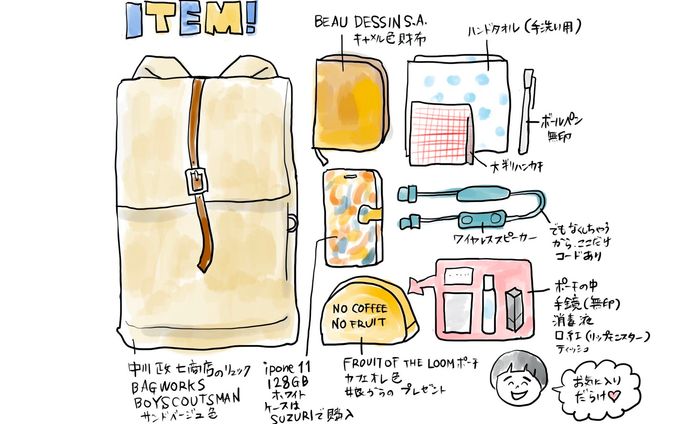 ITEM!
BEAU DESSIN S.A.
キャメル色財布
ハンドタオル（手洗い用）
ボールペン
無印
大判ハンカチ
ワイヤレススピーカー
でもなくしちゃう
から、ここだけ
コードあり
NO COFFEE
NO FRUIT
ポーチの中
手鏡(無印)
消毒液
口紅(リップモンスター)
ティッシュ
中川政七商店のリュック
BAGWORKS
BOYSCOUTSMAN
サンドベージュ色
ipone 11
128GB
ホワイト
ケースは
SUZURIで購入
FROUIT OF THE LOOMポーチ
カフェオレ色
娘からのプレゼント
お気に入り
だらけ♡